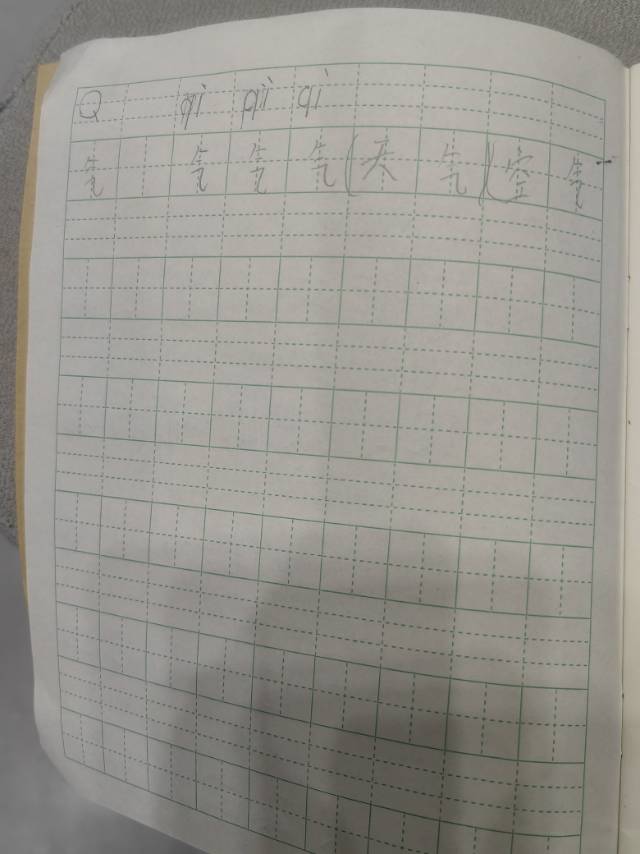 Q qì qì qì
气 气 气 气(天气)(空气